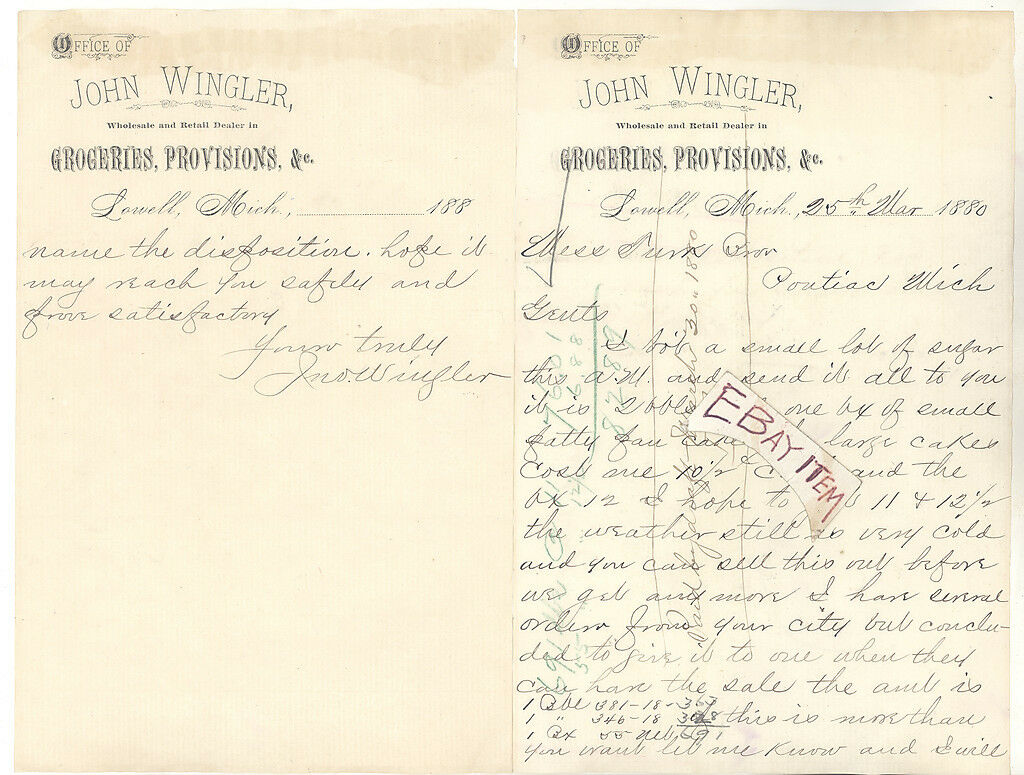 OFFICE OF
JOHN WINGLER,
Wholesale and Retail Dealer in
GROCERIES, PROVISIONS, &c.
Lowell, Mich., 188
name the disposition. hope it
may reach you safely and
prove satisfactory
Yours truly
Jno. Wingler
OFFICE OF
JOHN WINGLER,
Wholesale and Retail Dealer in
GROCERIES, PROVISIONS, &c.
Lowell, Mich., 25th Mar 1880
Mess Bros
Pontiac Mich
Gents
I bo't a small lot of sugar
this A.M. and send it all to you
it is 2 bbls one bx of small
patty pan large cakes
cost me 10½ and the
bx 12 I hope to 11 & 12½
the weather still is very cold
and you can sell this out before
we get any more I have several
orders from your city but conclu-
ded to give it to one when they
can have the sale the amt is
1 Bbl 381-18-363
1 " 346-18 328 this is more than
1 Bx 55 net 691
you want let me know and I will
Paid by draft March 30" 1880
691 @ 11 7601
55 12½ 688
8289
EBAY ITEM